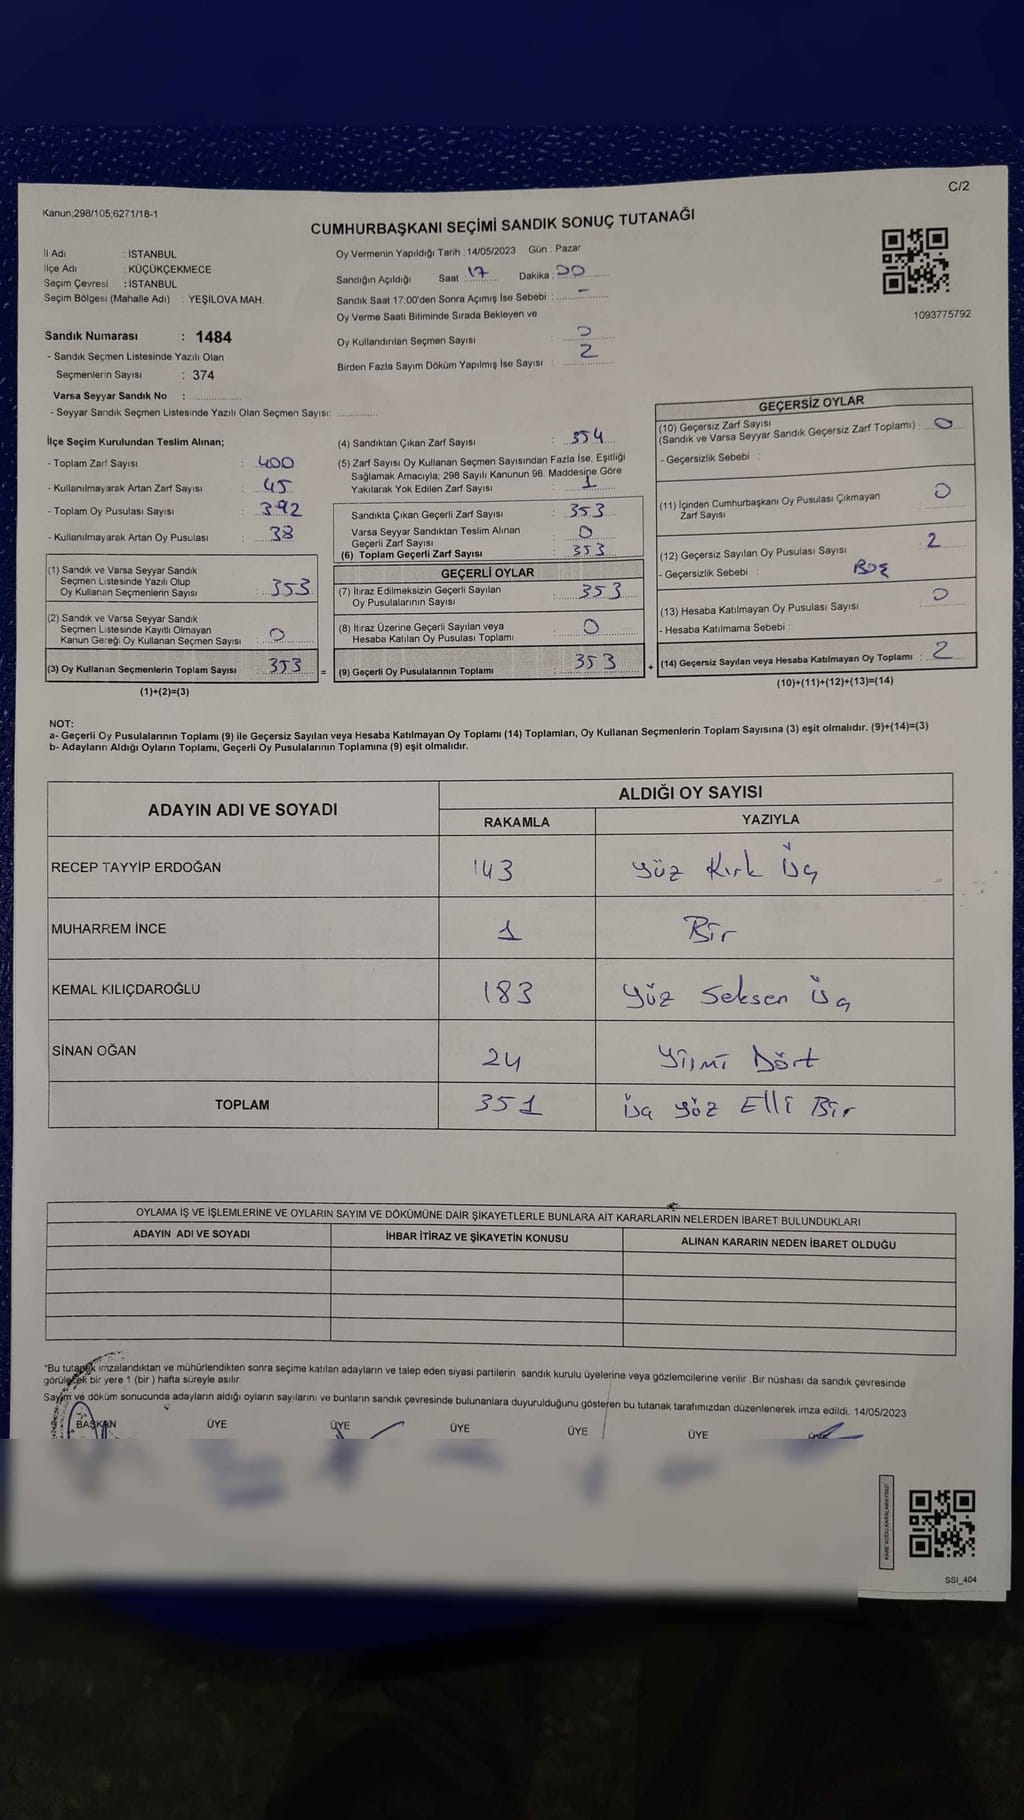 C/2
Kanun;298/105;6271/18-1
CUMHURBAŞKANI SEÇİMİ SANDIK SONUÇ TUTANAĞI
İl Adı : İSTANBUL
İlçe Adı : KÜÇÜKÇEKMECE
Seçim Çevresi : İSTANBUL
Seçim Bölgesi (Mahalle Adı) : YEŞİLOVA MAH.
Oy Vermenin Yapıldığı Tarih : 14/05/2023 Gün : Pazar
Sandığın Açıldığı Saat : 17 Dakika : 00
Sandık Saat 17:00'den Sonra Açımış İse Sebebi : -
Oy Verme Saati Bitiminde Sırada Bekleyen ve
Oy Kullandırılan Seçmen Sayısı : 0
Birden Fazla Sayım Döküm Yapılmış İse Sayısı : 2
1093775792
Sandık Numarası : 1484
- Sandık Seçmen Listesinde Yazılı Olan
Seçmenlerin Sayısı : 374
Varsa Seyyar Sandık No :
- Seyyar Sandık Seçmen Listesinde Yazılı Olan Seçmen Sayısı:
İlçe Seçim Kurulundan Teslim Alınan;
- Toplam Zarf Sayısı : 400
- Kullanılmayarak Artan Zarf Sayısı : 45
- Toplam Oy Pusulası Sayısı : 392
- Kullanılmayarak Artan Oy Pusulası : 38
(1) Sandık ve Varsa Seyyar Sandık
Seçmen Listesinde Yazılı Olup
Oy Kullanan Seçmenlerin Sayısı : 353
(2) Sandık ve Varsa Seyyar Sandık
Seçmen Listesinde Kayıtlı Olmayan
Kanun Gereği Oy Kullanan Seçmen Sayısı : 0
(3) Oy Kullanan Seçmenlerin Toplam Sayısı : 353 =
(1)+(2)=(3)
(4) Sandıktan Çıkan Zarf Sayısı : 354
(5) Zarf Sayısı Oy Kullanan Seçmen Sayısından Fazla İse, Eşitliği
Sağlamak Amacıyla; 298 Sayılı Kanunun 98. Maddesine Göre
Yakılarak Yok Edilen Zarf Sayısı : 1
Sandıkta Çıkan Geçerli Zarf Sayısı : 353
Varsa Seyyar Sandıktan Teslim Alınan
Geçerli Zarf Sayısı : 0
(6) Toplam Geçerli Zarf Sayısı : 353
GEÇERLİ OYLAR
(7) İtiraz Edilmeksizin Geçerli Sayılan
Oy Pusulalarının Sayısı : 353
(8) İtiraz Üzerine Geçerli Sayılan veya
Hesaba Katılan Oy Pusulası Toplamı : 0
(9) Geçerli Oy Pusulalarının Toplamı : 353 +
GEÇERSİZ OYLAR
(10) Geçersiz Zarf Sayısı
(Sandık ve Varsa Seyyar Sandık Geçersiz Zarf Toplamı) : 0
- Geçersizlik Sebebi :
(11) İçinden Cumhurbaşkanı Oy Pusulası Çıkmayan
Zarf Sayısı 0
(12) Geçersiz Sayılan Oy Pusulası Sayısı 2
- Geçersizlik Sebebi : Boş
(13) Hesaba Katılmayan Oy Pusulası Sayısı 0
- Hesaba Katılmama Sebebi :
(14) Geçersiz Sayılan veya Hesaba Katılmayan Oy Toplamı : 2
(10)+(11)+(12)+(13)=(14)
NOT:
a- Geçerli Oy Pusulalarının Toplamı (9) ile Geçersiz Sayılan veya Hesaba Katılmayan Oy Toplamı (14) Toplamları, Oy Kullanan Seçmenlerin Toplam Sayısına (3) eşit olmalıdır. (9)+(14)=(3)
b- Adayların Aldığı Oyların Toplamı, Geçerli Oy Pusulalarının Toplamına (9) eşit olmalıdır.
ADAYIN ADI VE SOYADI ALDIĞI OY SAYISI
RAKAMLA YAZIYLA
RECEP TAYYİP ERDOĞAN 143 Yüz Kırk Üç
MUHARREM İNCE 1 Bir
KEMAL KILIÇDAROĞLU 183 Yüz Seksen Üç
SİNAN OĞAN 24 Yirmi Dört
TOPLAM 351 Üç Yüz Elli Bir
OYLAMA İŞ VE İŞLEMLERİNE VE OYLARIN SAYIM VE DÖKÜMÜNE DAİR ŞİKAYETLERLE BUNLARA AİT KARARLARIN NELERDEN İBARET BULUNDUKLARI
ADAYIN ADI VE SOYADI İHBAR İTİRAZ VE ŞİKAYETİN KONUSU ALINAN KARARIN NEDEN İBARET OLDUĞU
*Bu tutanak imzalandıktan ve mühürlendikten sonra seçime katılan adayların ve talep eden siyasi partilerin sandık kurulu üyelerine veya gözlemcilerine verilir .Bir nüshası da sandık çevresinde
görülecek bir yere 1 (bir ) hafta süreyle asılır
Sayım ve döküm sonucunda adayların aldığı oyların sayılarını ve bunların sandık çevresinde bulunanlara duyurulduğunu gösteren bu tutanak tarafımızdan düzenlenerek imza edildi. 14/05/2023
BAŞKAN ÜYE ÜYE ÜYE ÜYE ÜYE ÜYE
SSI_404